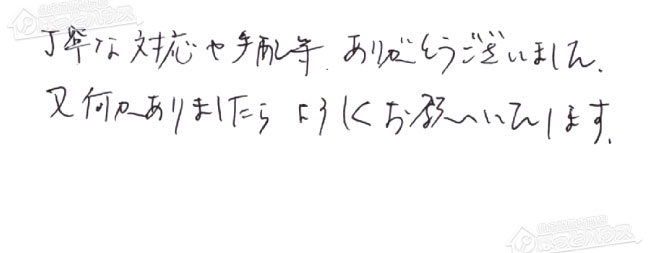 丁寧な対応や手配等、ありがとうございました。
又何かありましたらよろしくお願いいたします。